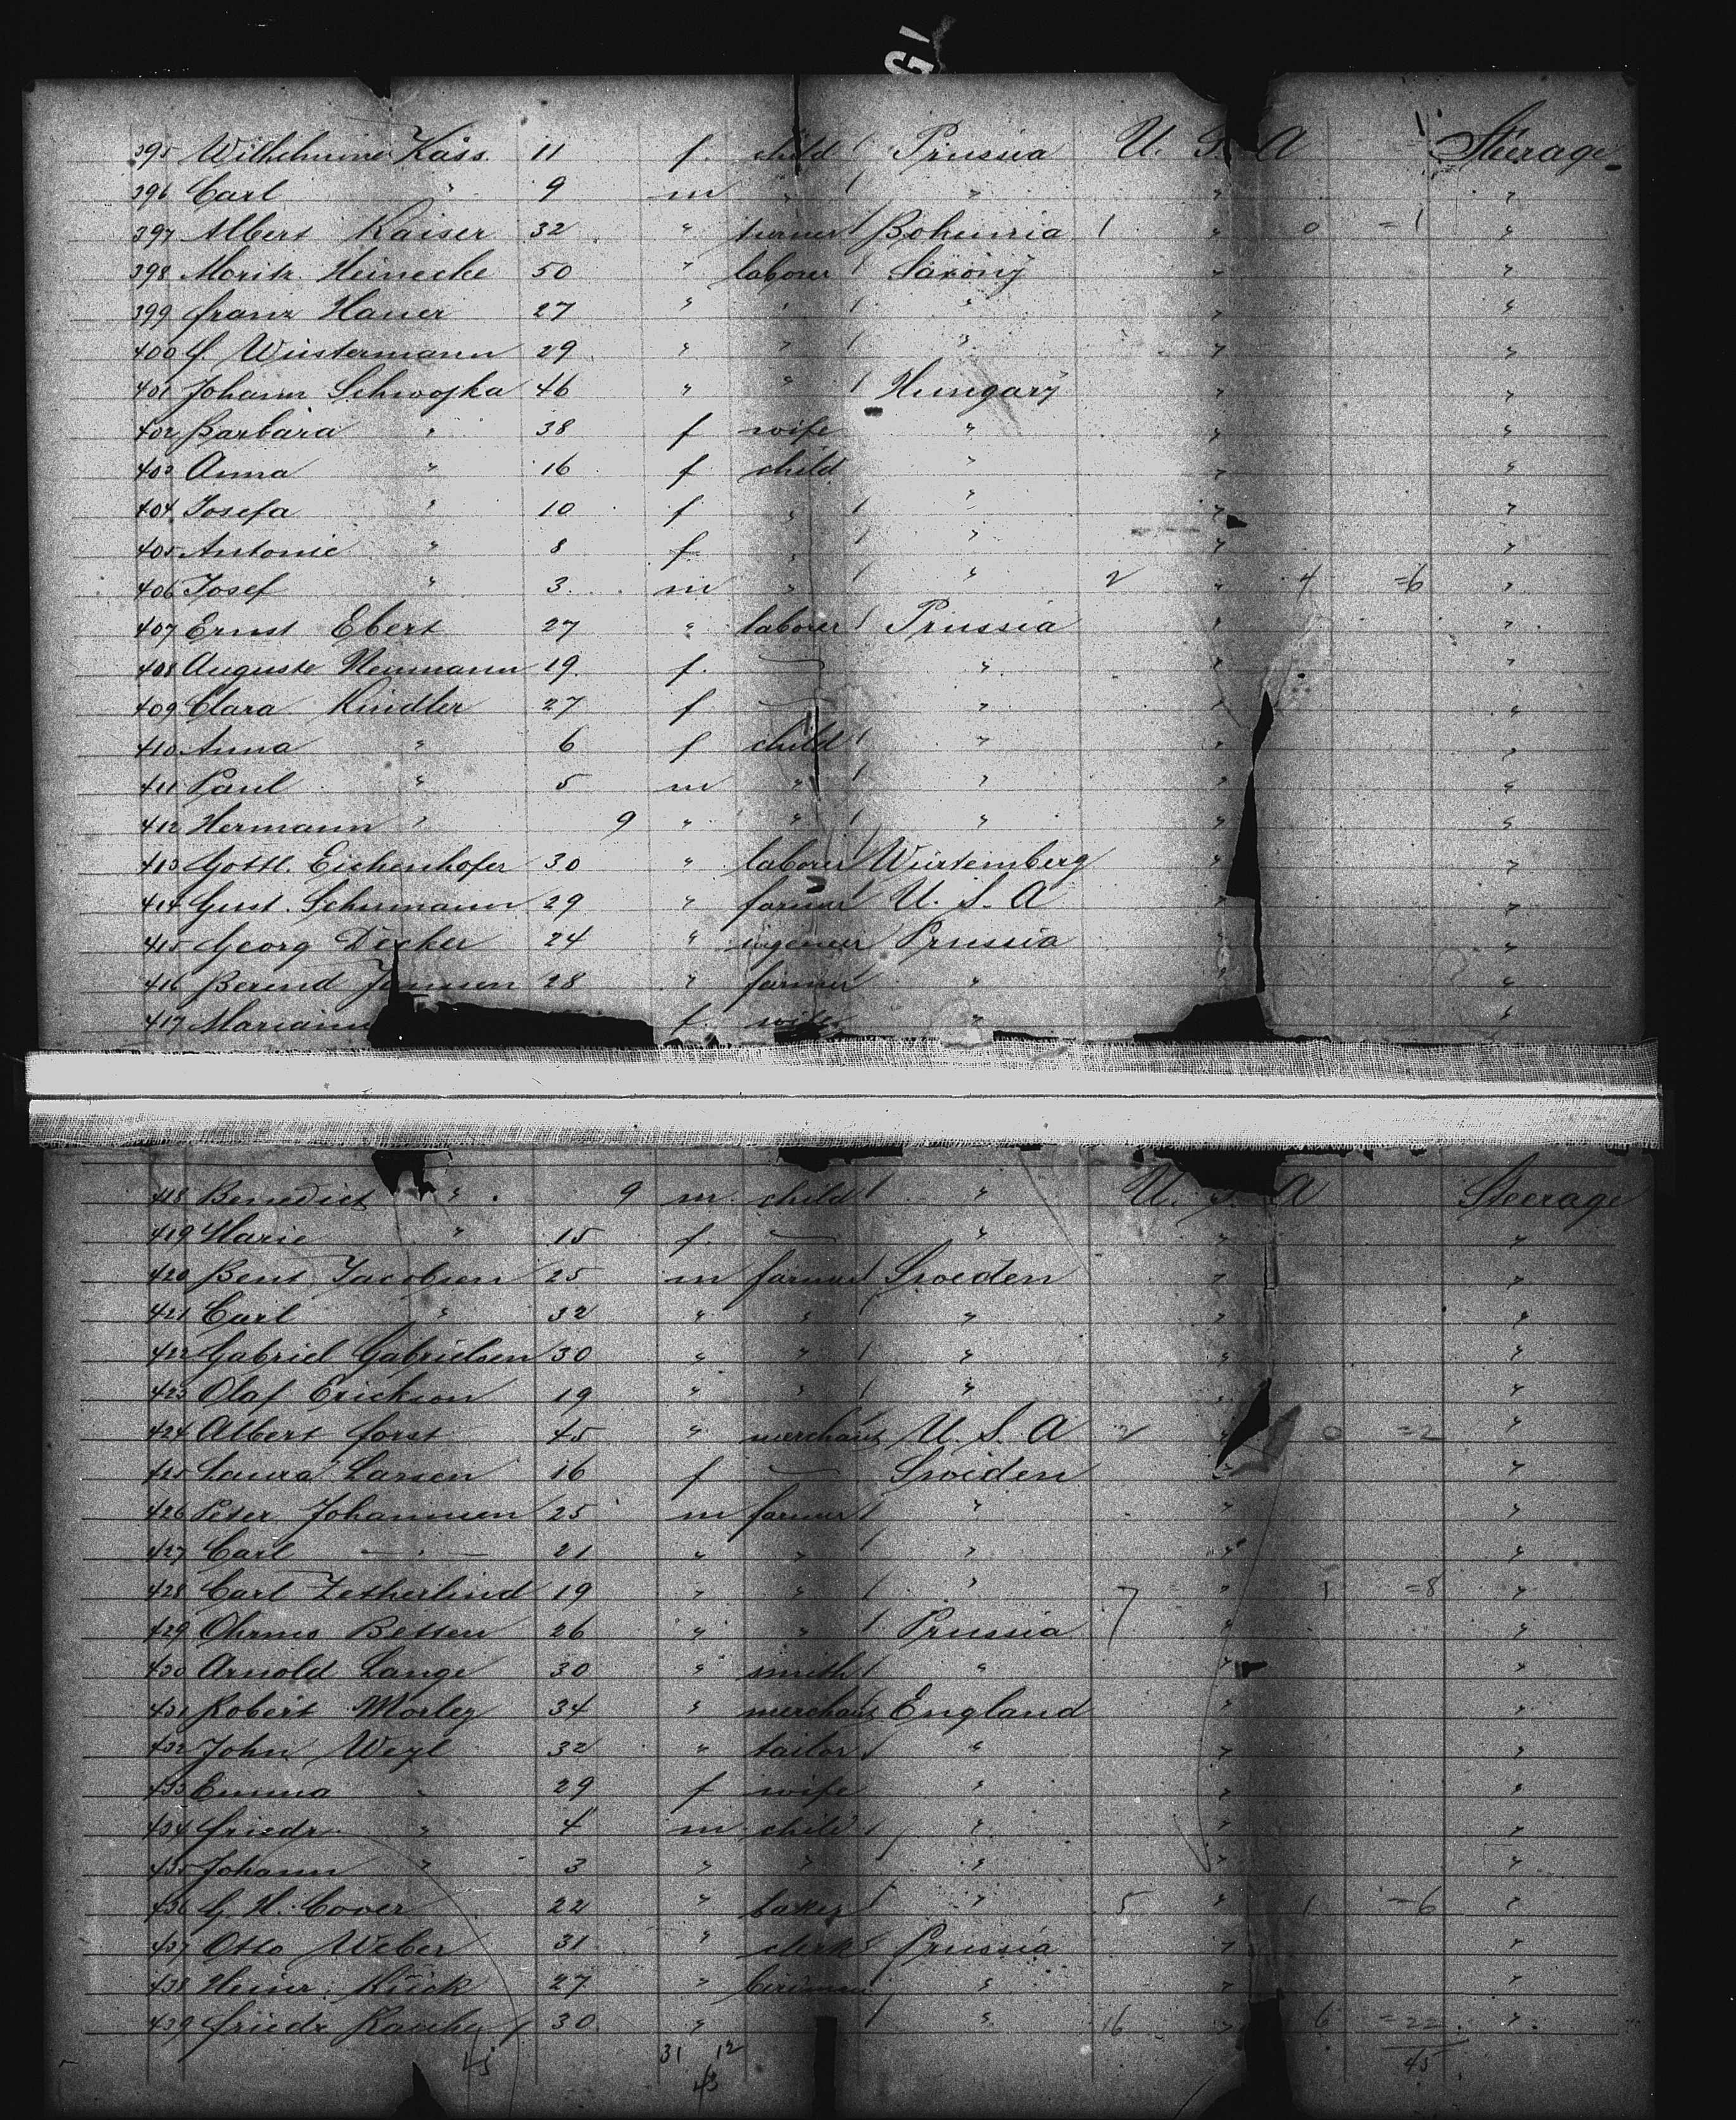 395 Wilhelmine Kass. 11 f. child 1 Prussia U. S. A Steerage
396 Carl " 9 m " 1 " " "
397 Albert Kaiser 32 " turner 1 Bohemia 1 " 0 =1 "
398 Moritz Heinecke 50 " laborer 1 Saxony " "
399 Franz Hauer 27 " " 1 " " "
400 F. Wüstermann 29 " " 1 " " "
401 Johann Schwojka 46 " " 1 Hungary " "
402 Barbara " 38 f wife " " "
403 Anna " 16 f child " " "
404 Josefa " 10 f " 1 " " "
405 Antonie " 8 f " 1 " " "
406 Josef " 3 m " 1 " 2 " 4 =6 "
407 Ernst Ebert 27 " laborer 1 Prussia " "
408 Auguste Neumann 19 f. — " " "
409 Clara Kindler 27 f — " " "
410 Anna " 6 f child 1 " " "
411 Paul " 5 m " 1 " " "
412 Hermann " 9 " " 1 " " "
413 Gottl. Eichenhofer 30 " laborer 1 Würtemberg " "
414 Gust. Schurmann 29 " farmer 1 U. S. A " "
415 Georg Decker 24 " Prussia " "
416 Berend Janssen 28 " farmer " " "
417 f. wife " "
418 Benedict " 9 m. child 1 " U. S. A Steerage
419 Marie " 15 f. — " " "
420 Bent Jacobsen 25 m farmer 1 Sweden " "
421 Carl " 32 " " " " "
422 Gabriel Gabrielsen 30 " " 1 " " "
423 Olaf Erickson 19 " " 1 " " "
424 Albert Forst 45 " merchant U. S. A 2 " 0 =2 "
425 Laura Larsen 16 f — Sweden " "
426 Peter Johannsen 25 m farmer 1 " " "
427 Carl — " — 21 " " 1 " " "
428 Carl Zetherlind 19 " " 1 " 7 " 1 =8 "
429 Betten 26 " " 1 Prussia " "
430 Arnold Lange 30 " smith 1 " " "
431 Robert Morley 34 " merchant England " "
432 John Weyl 32 " tailor 1 " " "
433 Emma " 29 f wife " " "
434 Friedr. " 4 m child 1 " " "
435 Johann " 3 " " " " "
436 G. H. Cover 22 " baker 1 " 5 " 1 =6 "
437 Otto Weber 31 " clerk Prussia " "
438 Heinr. Kück 27 " " " "
439 Friedr. 30 " 1 " 16 " 6 =22 "
45 31 12 45
43